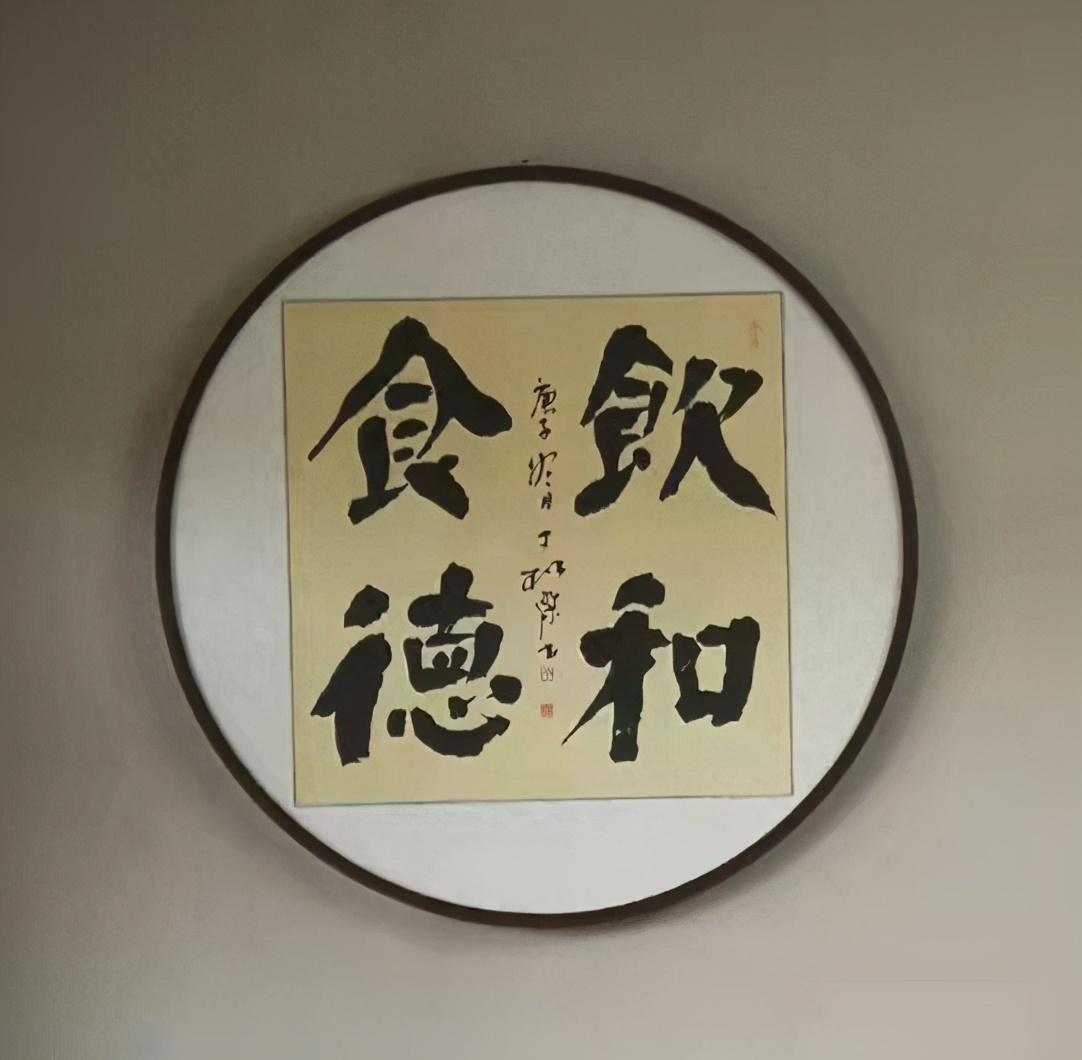 飲和
食德
庚子 月丁松傑書